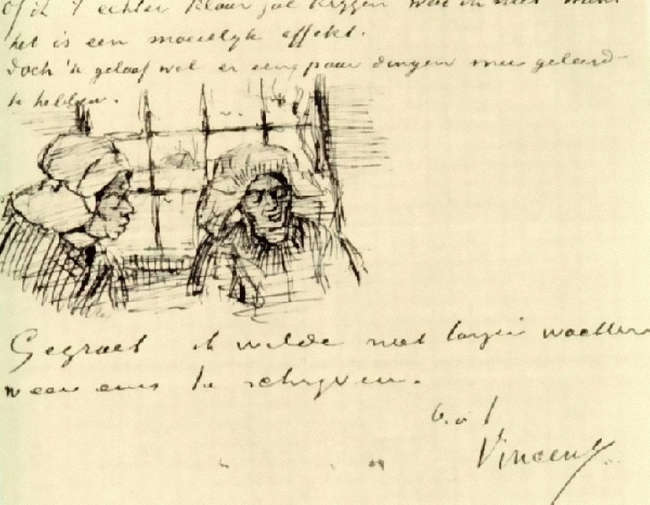 Of ik 't echter klaar zal krygen weet ik niet want
het is een moeielyk effekt.
Doch 'k geloof wel er een paar dingen mee geleerd
te hebben.
Gegroet ik wilde niet langer wachten
weer eens te schryven.
b. à t
Vincent